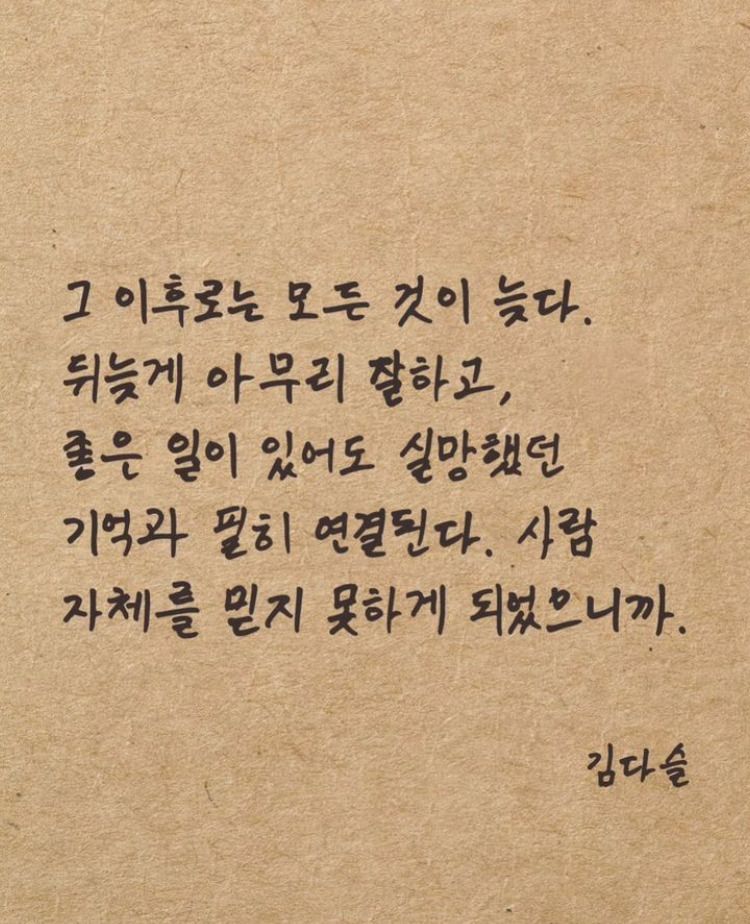 그 이후로는 모든 것이 늦다.
뒤늦게 아무리 잘하고,
좋은 일이 있어도 실망했던
기억과 필히 연결된다. 사람
자체를 믿지 못하게 되었으니까.
김다슬